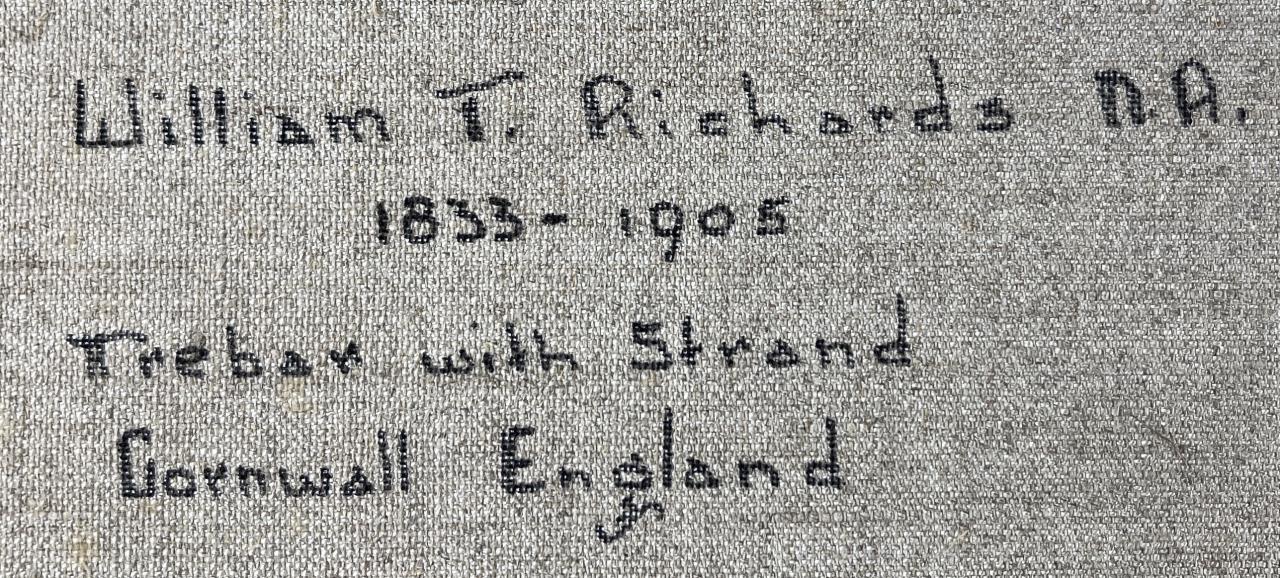 William T. Richards N.A.
1833 - 1905
Trebar with Strand
Cornwall England